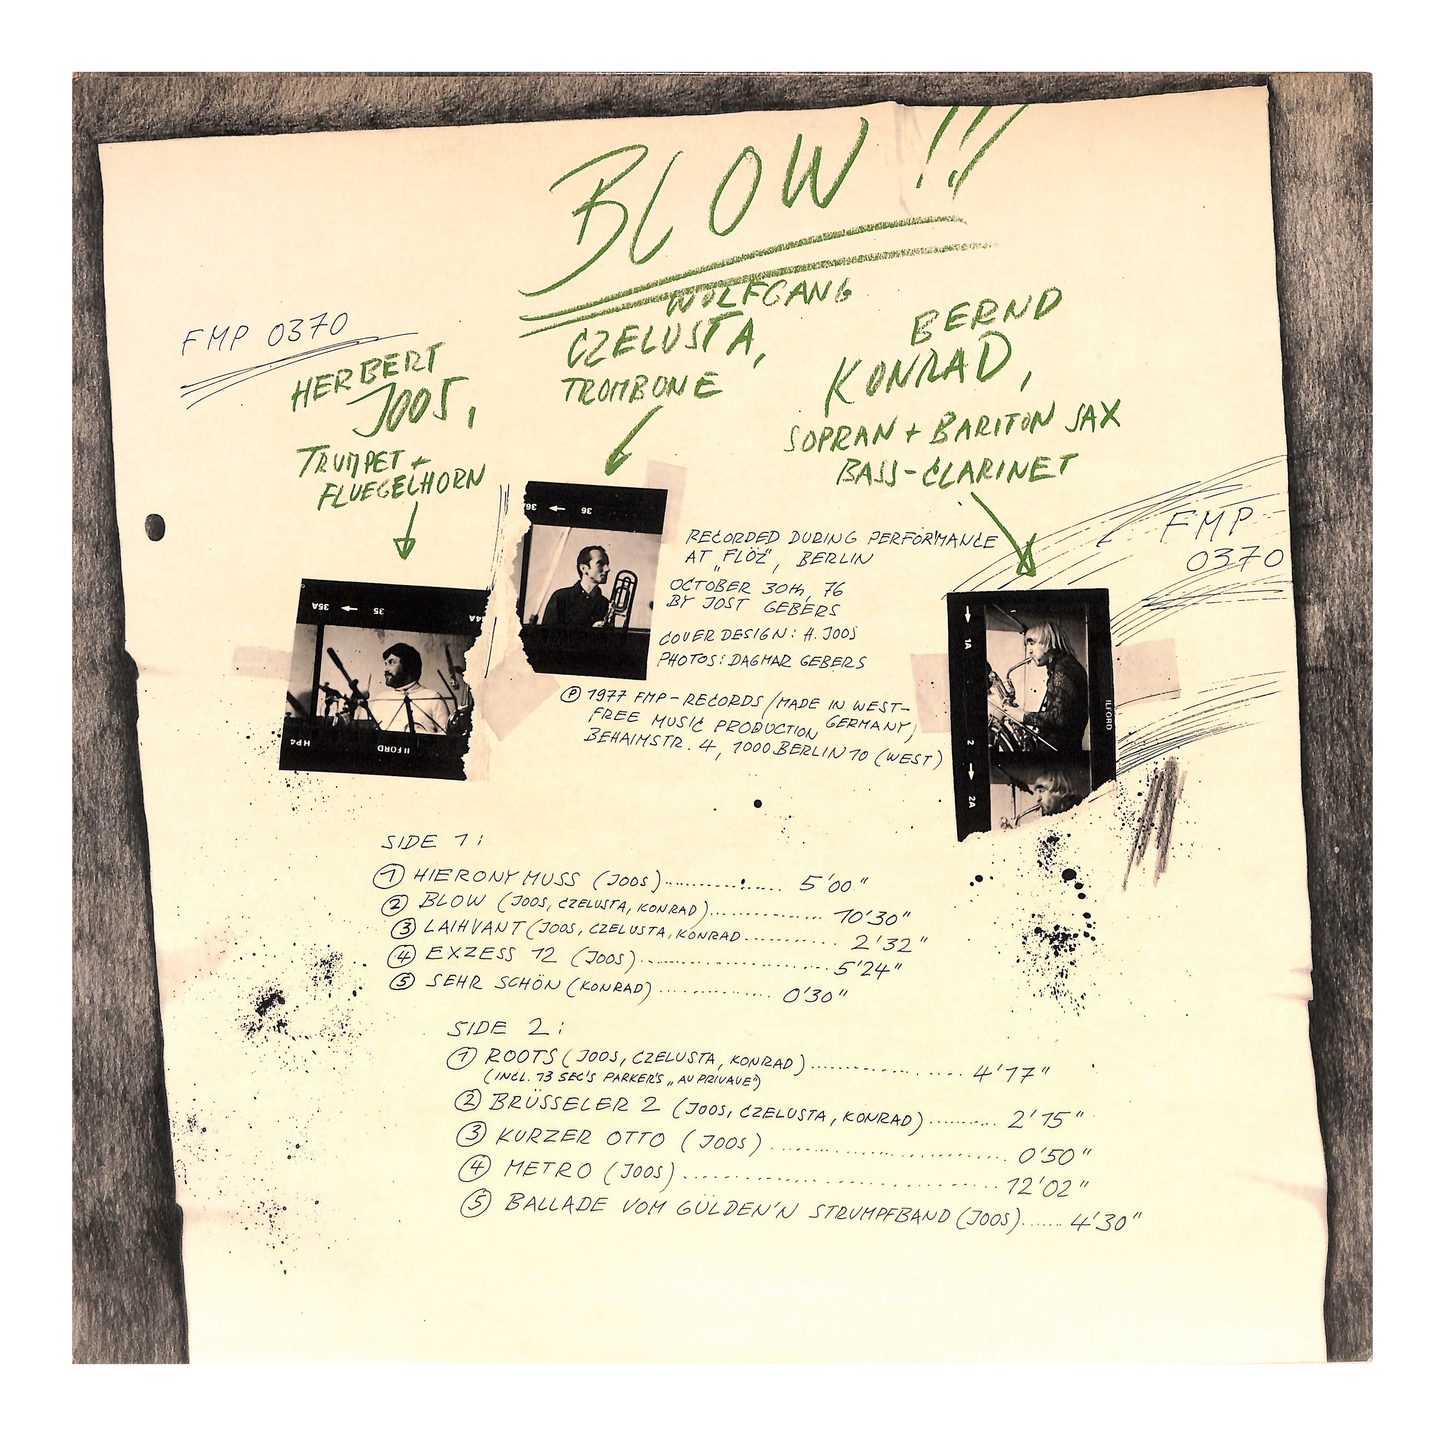 BLOW!!
FMP 0370
HERBERT
JOOS,
TRUMPET +
FLUEGELHORN
WOLFGANG
CZELUSTA,
TROMBONE
BERND
KONRAD,
SOPRAN + BARITON SAX
BASS-CLARINET
FMP
0370
36
36
35A
35
34A
HP4
ILFORD
1A
2
2A
ILFORD
RECORDED DURING PERFORMANCE
AT „FLÖZ", BERLIN
OCTOBER 30th, 76
BY JOST GEBERS
COVER DESIGN: H. JOOS
PHOTOS: DAGMAR GEBERS
Ⓟ 1977 FMP-RECORDS/MADE IN WEST-
GERMANY/
FREE MUSIC PRODUCTION
BEHAIMSTR. 4, 1000 BERLIN 10 (WEST)
SIDE 1:
① HIERONYMUSS (JOOS)............... 5'00"
② BLOW (JOOS, CZELUSTA, KONRAD)............... 10'30"
③ LAIHVANT (JOOS, CZELUSTA, KONRAD............ 2'32"
④ EXZESS 12 (JOOS)........................ 5'24"
⑤ SEHR SCHÖN (KONRAD)............... 0'30"
SIDE 2:
① ROOTS (JOOS, CZELUSTA, KONRAD)................ 4'17"
(INCL. 13 SEC'S PARKER'S „AU PRIVAVE")
② BRÜSSELER 2 (JOOS, CZELUSTA, KONRAD).......... 2'15"
③ KURZER OTTO (JOOS)........................ 0'50"
④ METRO (JOOS)................................ 12'02"
⑤ BALLADE VOM GÜLDEN'N STRUMPFBAND (JOOS)...... 4'30"